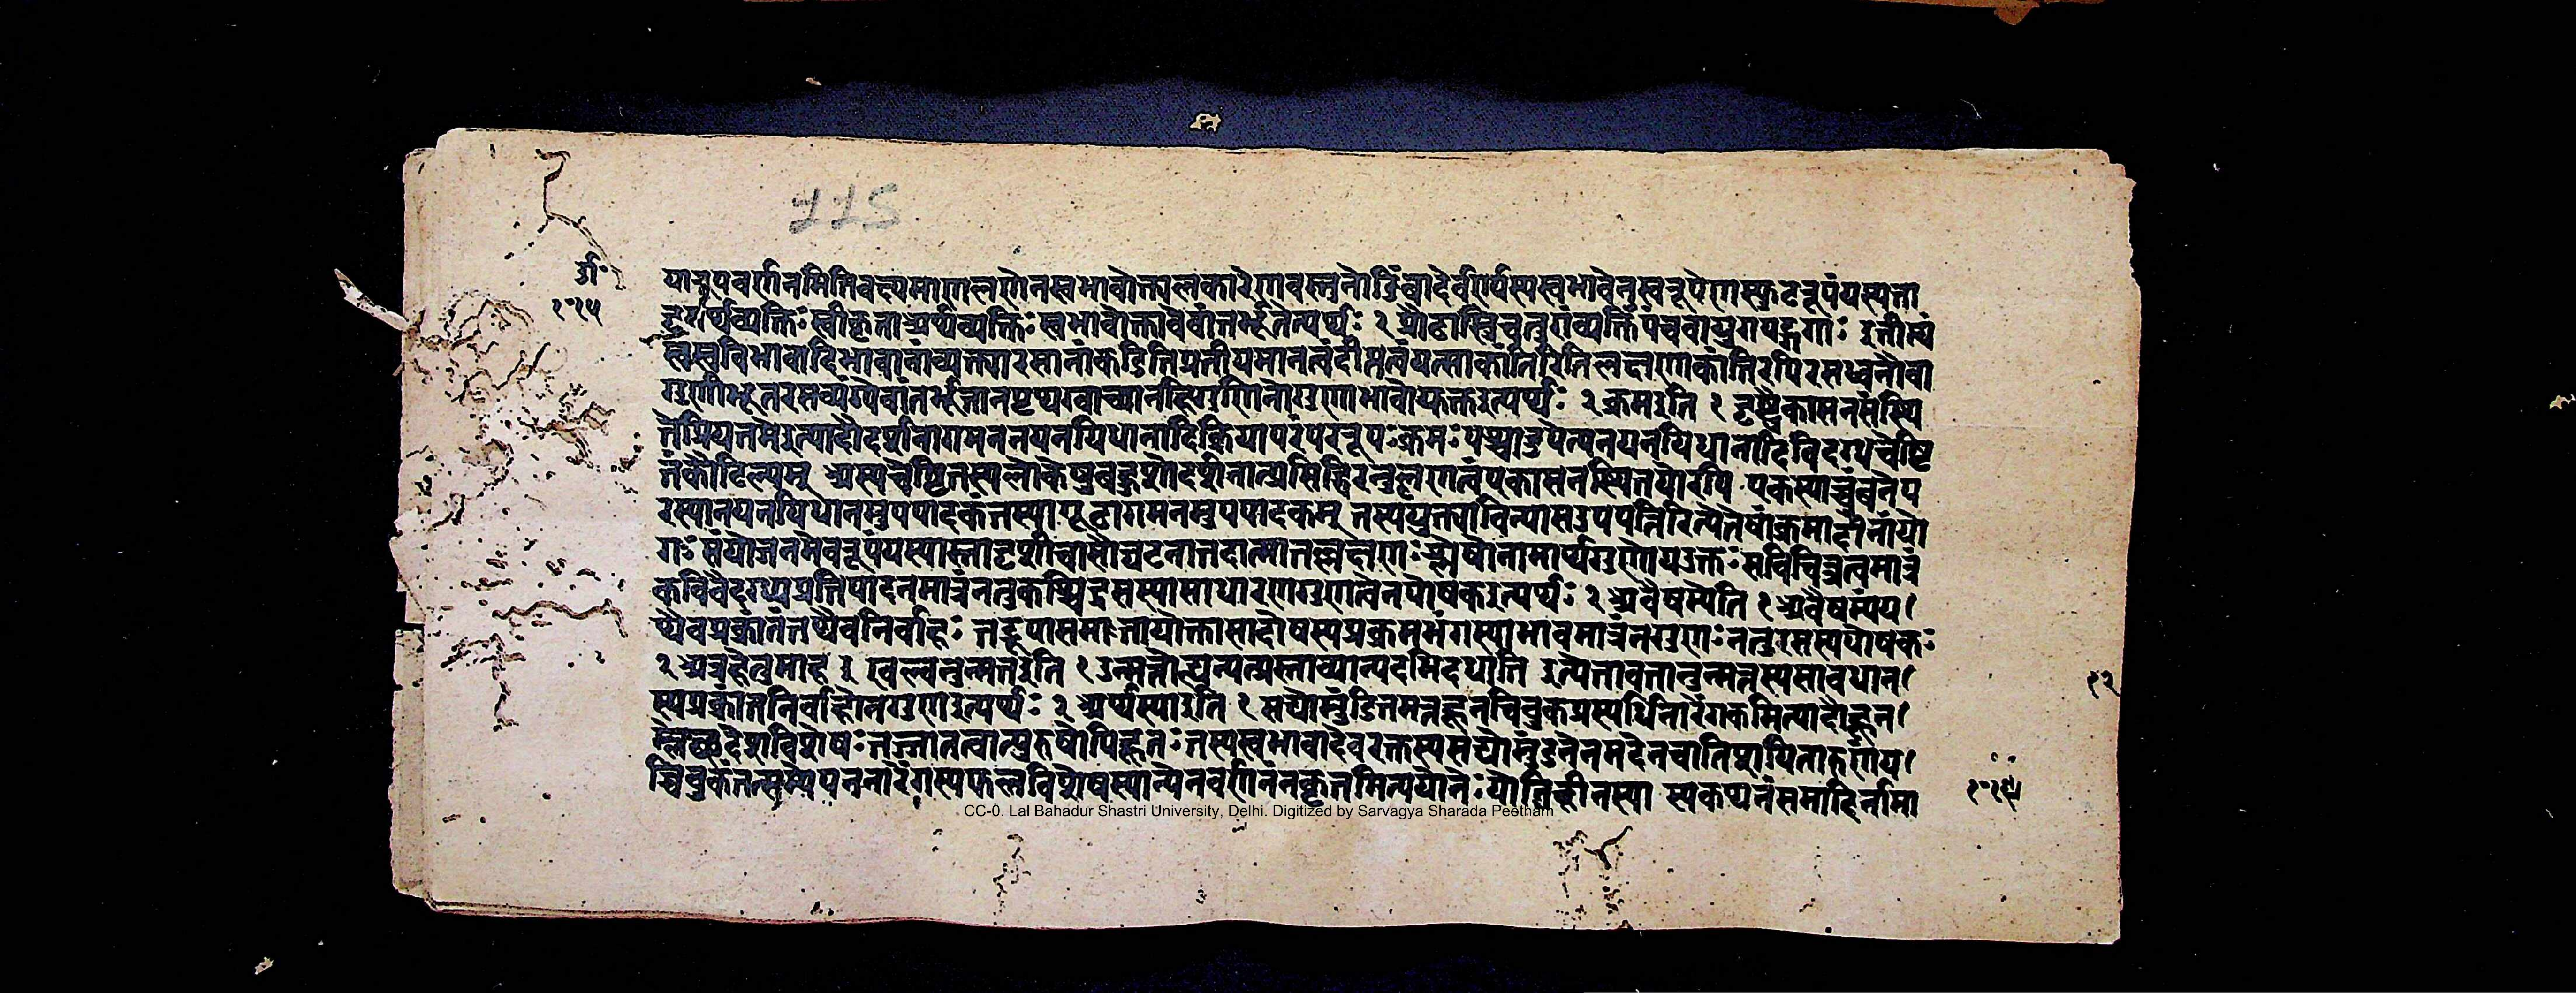 115
यारूपवर्णनमितिवक्ष्यमाणलक्षणेनस्वभावोक्त्यलंकारेणवस्तुनोडिंबादेर्वर्ण्यस्यस्वभावेनस्वरूपेणस्फुटरूपंयस्यता
१११५
दृगर्थव्यक्तिः स्वीकृताअर्थव्यक्तिः स्वभावोक्तावेवांतर्भूतेत्यर्थः २ प्रौढास्विचतुर्गंव्यक्तिं
त्वस्वविभावादिभावानांव्यक्त्यारसानांकडितिप्रतीयमानत्वंदीप्तत्वंयत्साकांतिरितिलक्षणाकांतिरपिरसध्वनौवा
गुणीभूतरसव्यंग्येवांतर्भूतानपृथग्वाच्यानहिगुणिनोगुणाभावोयुक्तइत्यर्थः २ क्रमइति १ दृष्ट्वैकासनसंस्थि
तेप्रियतमेइत्यादौदर्शनागमननयनपिधानादिक्रियापरंपरारूपःक्रमः पश्चादुपेत्यनयनपिधानादिविदग्धचेष्टि
तंकौटिल्यम् अस्यचेष्टितस्यलोकेषुबहुशोदर्शनात्प्रसिद्धिरनुल्बणत्वंएकासनस्थितयोरपि एकस्याश्चुंबनेप
रस्यानयनपिधानमुपपादकंतस्यागूढागमनमुपपादकम् तस्ययुक्त्याविन्यासउपपत्तिरित्येतेषांक्रमादीनांयो
गः संयोजनमेवरूपंयस्यास्तादृशीचासौघटनातदात्मातल्लक्षणः श्लेषोनामार्थगुणोयउक्तः सविचित्रत्वमात्रं
कविवैदग्ध्यप्रतिपादनमात्रंनतुकश्चिद्रसस्यासाधारणगुणत्वेनपोषकइत्यर्थः २ अवैषम्येति १ अवैषम्यंय।
थैवप्रक्रांतंतथैवनिर्वाहः तद्रूपासमतायोक्तासादोषस्यप्रक्रमभंगस्याभावमात्रंनगुणः ननुरसस्यपोषकः
२ अत्रहेतुमाह इ खल्वनुन्मत्तइति १ उन्मत्तोह्यन्यत्प्रस्ताव्यान्यदभिदधाति इत्येतावतानुन्मत्तस्यसावधान।
१२
स्यप्रक्रांतनिर्वाहोनगुणइत्यर्थः २ अर्थस्याइति १ सद्योमुंडितमत्तहूनचिबुकप्रस्पर्धिनारंगकमित्यादौहून।
म्लेच्छदेशविशेषः तज्जातत्वात्पुरुषोपिहूनः तस्यस्वभावादेवरक्तस्यसद्योमुंडनेनमदेनचातिशयितारुणंय।
च्चिबुकंतत्साम्येपननारंगस्यफलविशेषस्यान्येनवर्णनंनकृतमित्ययोनिः योतिहीनस्या स्यकथनंसमाधिर्नामा
CC-0. Lal Bahadur Shastri University, Delhi. Digitized by Sarvagya Sharada Peetham